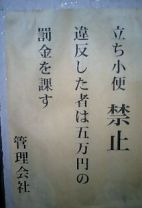 立ち小便 禁止
違反した者は五万円の
罰金を課す
管理会社